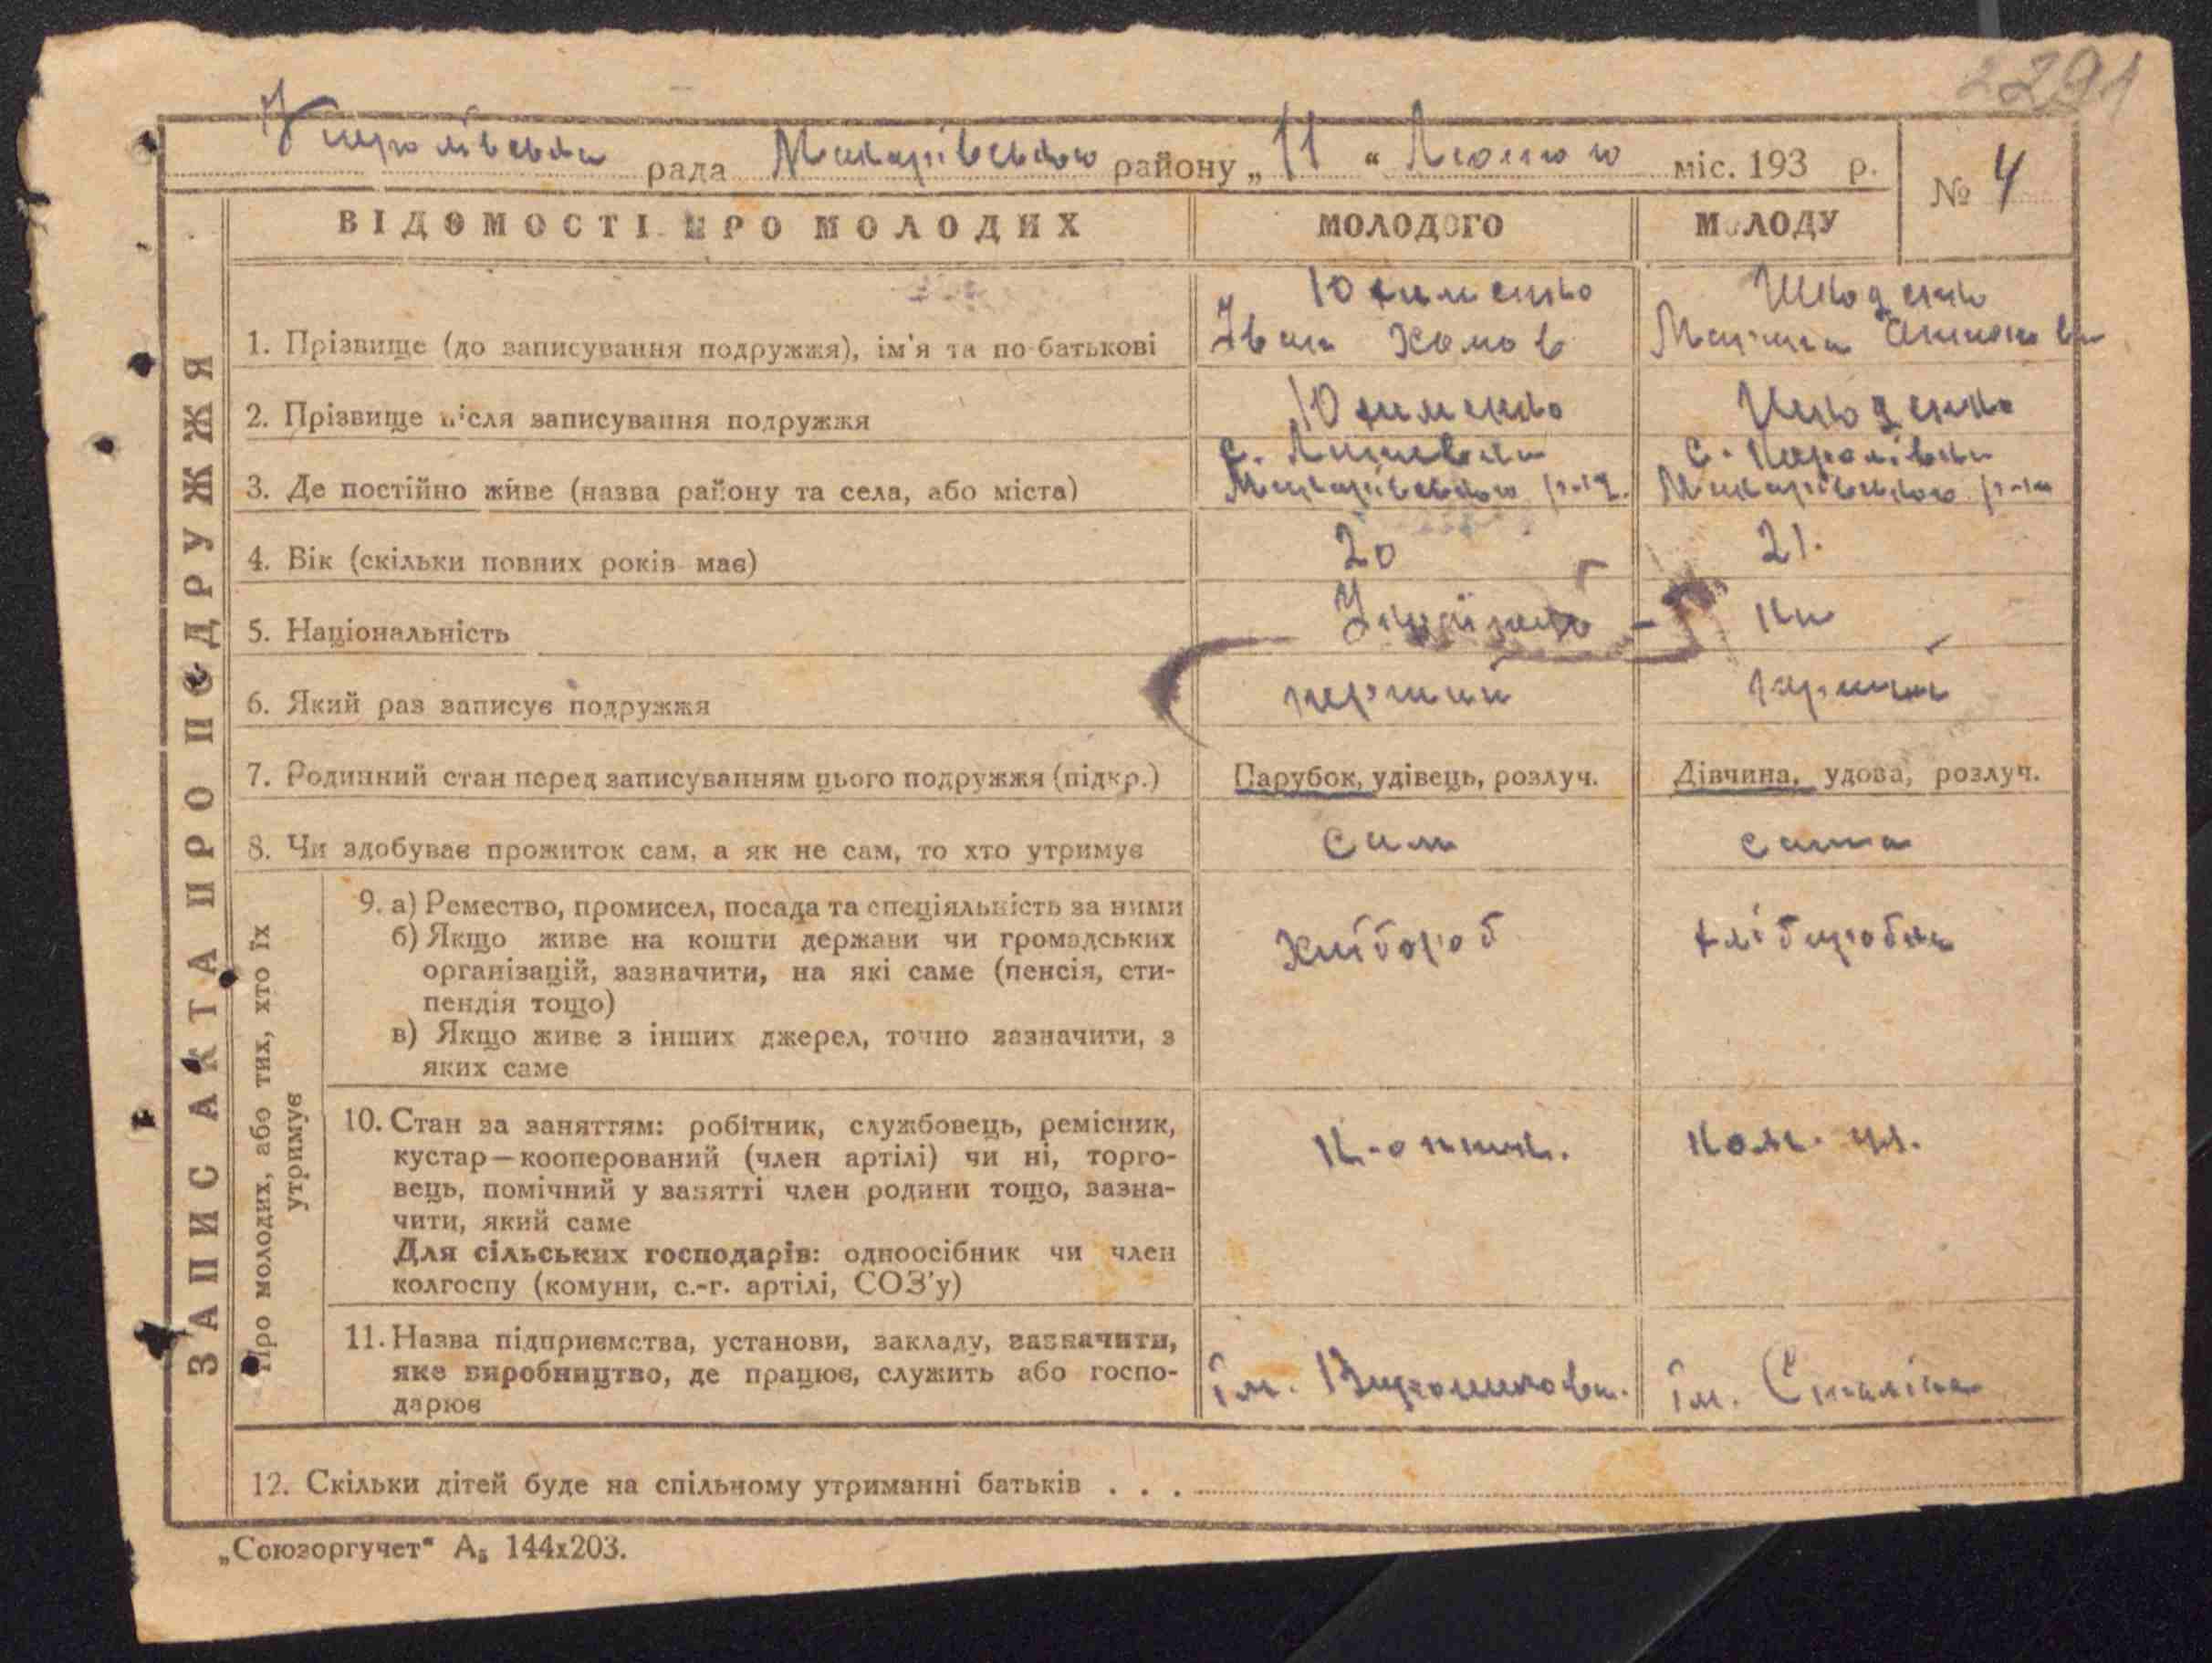 2291
Королівська рада Макарівського району „ 11 “ Лютого міс. 193 р. № 4
ВІДОМОСТІ ПРО МОЛОДИХ МОЛОДОГО МОЛОДУ
ЗАПИС АКТА ПРО ПОДРУЖЖЯ
Юхименко Шкоденко
1. Прізвище (до записування подружжя), ім'я та по-батькові Іван Хомов Марина
2. Прізвище після записування подружжя Юхименко Шкоденко
с. с. Королівка
3. Де постійно живе (назва району та села, або міста) Макарівського р-н. Макарівського р-на
4. Вік (скільки повних років має) 20 21.
5. Національність Українець - ка
6. Який раз записує подружжя перший перший
7. Родинний стан перед записуванням цього подружжя (підкр.) Парубок, удівець, розлуч. Дівчина, удова, розлуч.
8. Чи здобуває прожиток сам, а як не сам, то хто утримує сам сама
Про молодих, або тих, хто їх
утримує
9. а) Ремество, промисел, посада та спеціяльність за ними
б) Якщо живе на кошти держави чи громадських Хлібороб хлібороб
організацій, зазначити, на які саме (пенсія, сти-
пендія тощо)
в) Якщо живе з інших джерел, точно зазначити, з
яких саме
10. Стан за заняттям: робітник, службовець, ремісник,
кустар—кооперований (член артілі) чи ні, торго- кол. чл.
вець, помічний у занятті член родини тощо, зазна-
чити, який саме
Для сільських господарів: одноосібник чи член
колгоспу (комуни, с.-г. артілі, СОЗ'у)
11. Назва підприємства, установи, закладу, зазначити,
яке виробництво, де працює, служить або госпо- ім. Ворошилова. ім. Сталіна
дарює
12. Скільки дітей буде на спільному утриманні батьків . . .
„Союзоргучет“ А₅ 144х203.